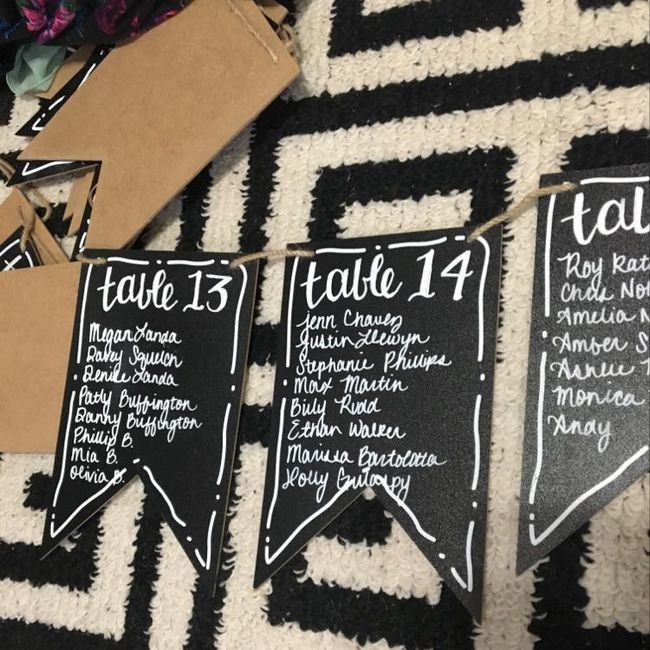 table 13
Megan Landa
Davey Squelon
Denise Landa
Patty Buffington
Danny Buffington
Phillip B.
Mia B.
Olivia B.
table 14
Jenn Chavez
Justin Llewyn
Stephanie Phillips
Max Martin
Billy Rudd
Ethan Walker
Marissa Bartolotta
Holly
Roy
Chas
Amelia
Amber
Ashlie
Monica
Andy